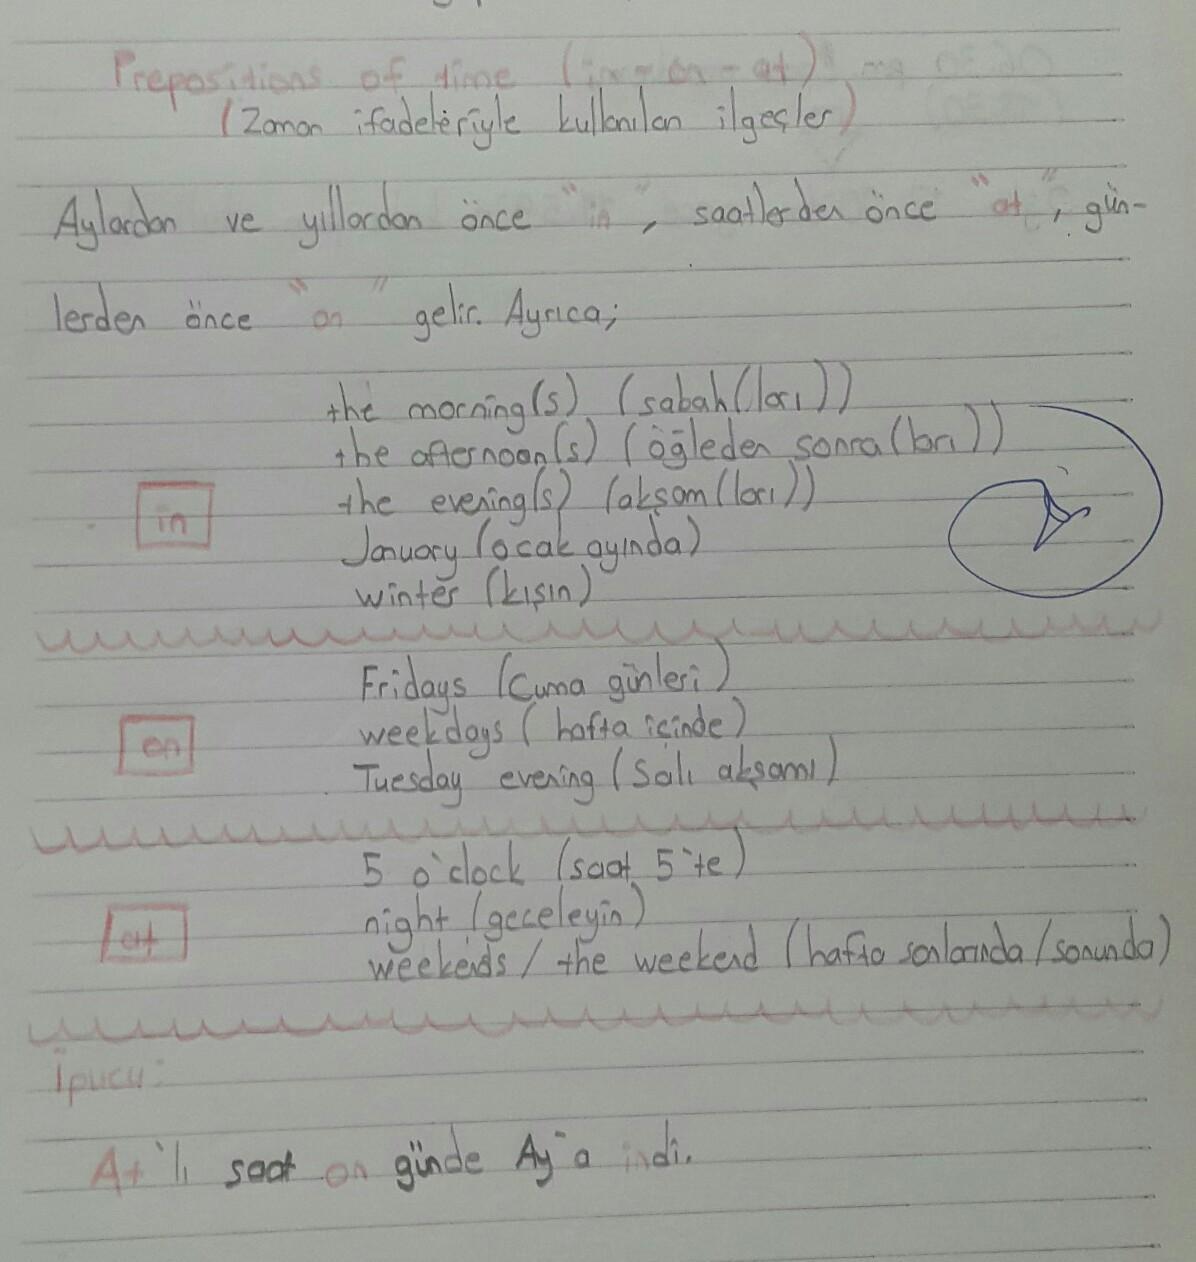 Prepositions of time (in - on - at)
(Zaman ifadeleriyle kullanılan ilgeçler)
Aylardan ve yıllardan önce "in", saatlerden önce "at", gün-
lerden önce "on" gelir. Ayrıca;
the morning(s) (sabah(ları))
the afternoon(s) (öğleden sonra(ları))
in
the evening(s) (akşam(ları))
January (ocak ayında)
winter (kışın)
Fridays (Cuma günleri)
on
weekdays (hafta içinde)
Tuesday evening (Salı akşamı)
5 o'clock (saat 5'te)
at
night (geceleyin)
weekends / the weekend (hafta sonlarında/sonunda)
İpucu:
At'lı saat on günde Ay'a indi.